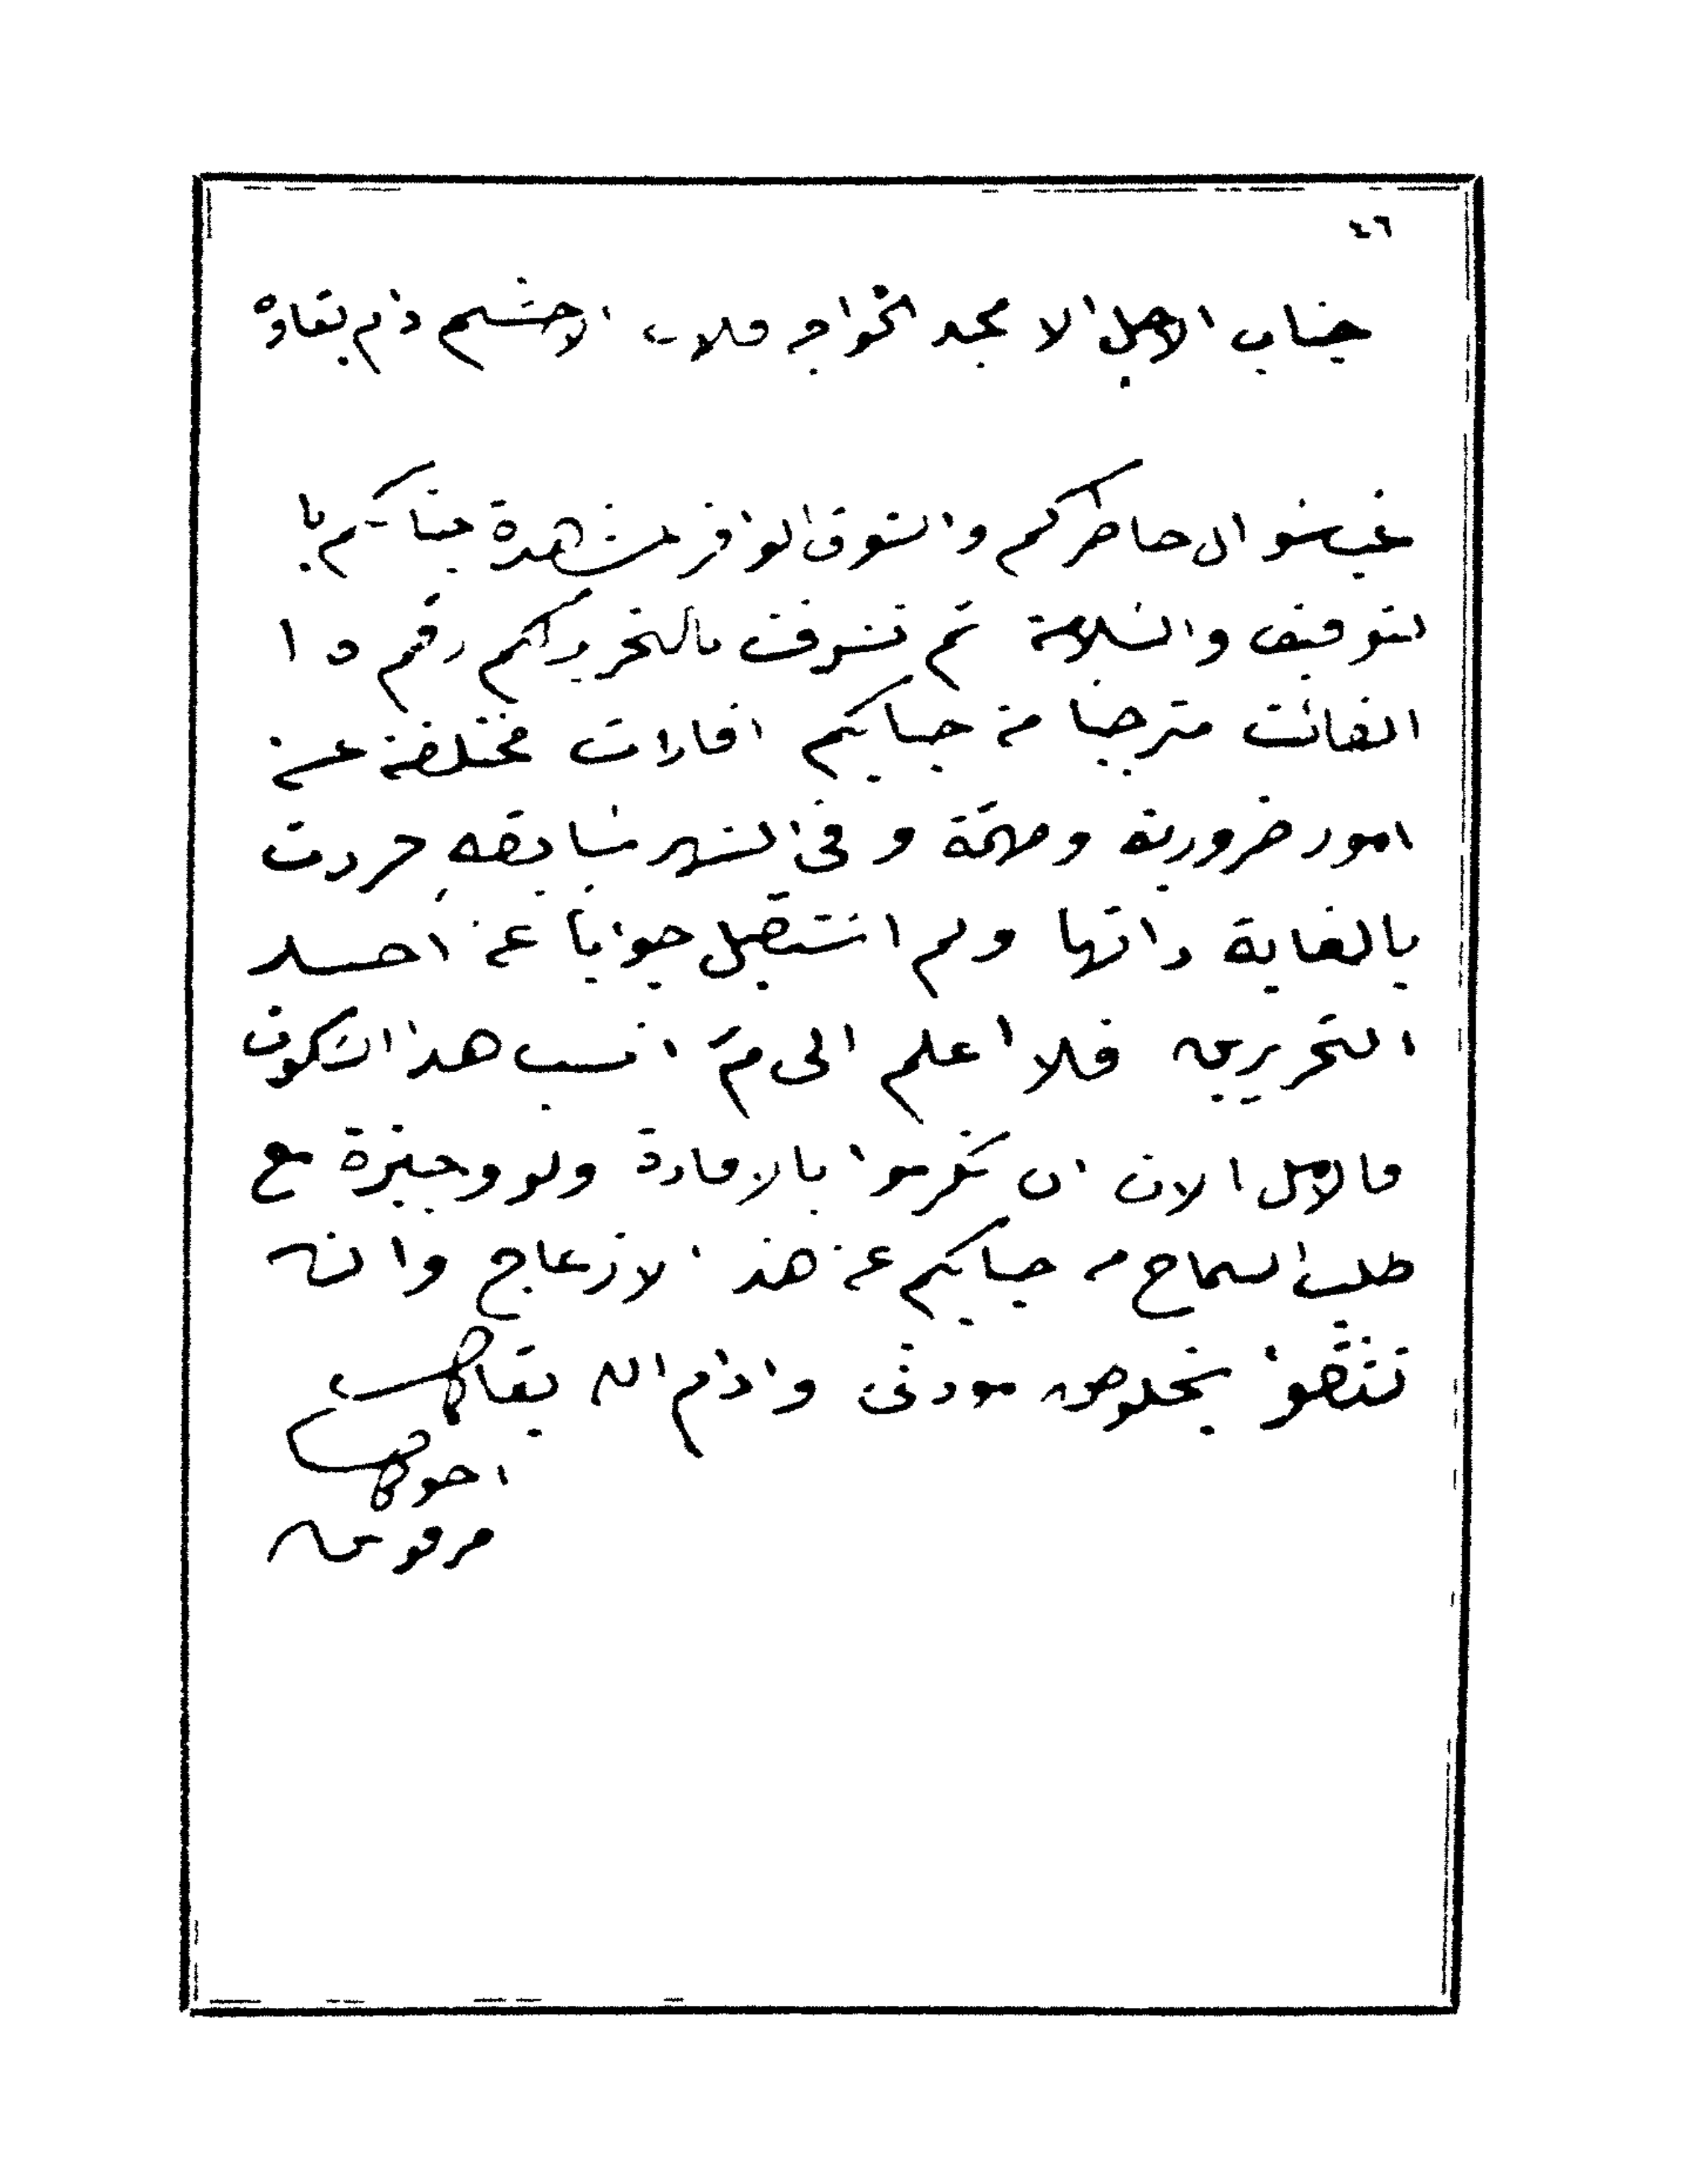 ٤٦
جناب الاجل الامجد الخواجه فلان الاحتشم دام بقاوه
غب سوال خاطركم والشوق الوافر لمشهدة جنابكم با
لتوفيق والسلامة ثم تشرفت بالتحريركم رقم ١٥
الفائت مترجيا من جنابكم افادات مختلفة عن
امور ضرورية ومهمّة وفي الشهر سابقه حررت
بالغاية ذاتها ولم استقبل جوابا عن احد
التحريرين فلا اعلم الى مَ انسب هذا السكوت
فالامل الان ان تكرموا بالافادة ولو وجيزة مع
طلب السماح من جنابكم عن هذا الازعاج وان
تثقوا بخلوص مودتي وادام الله بقاكم
اخوكم
مرقوس